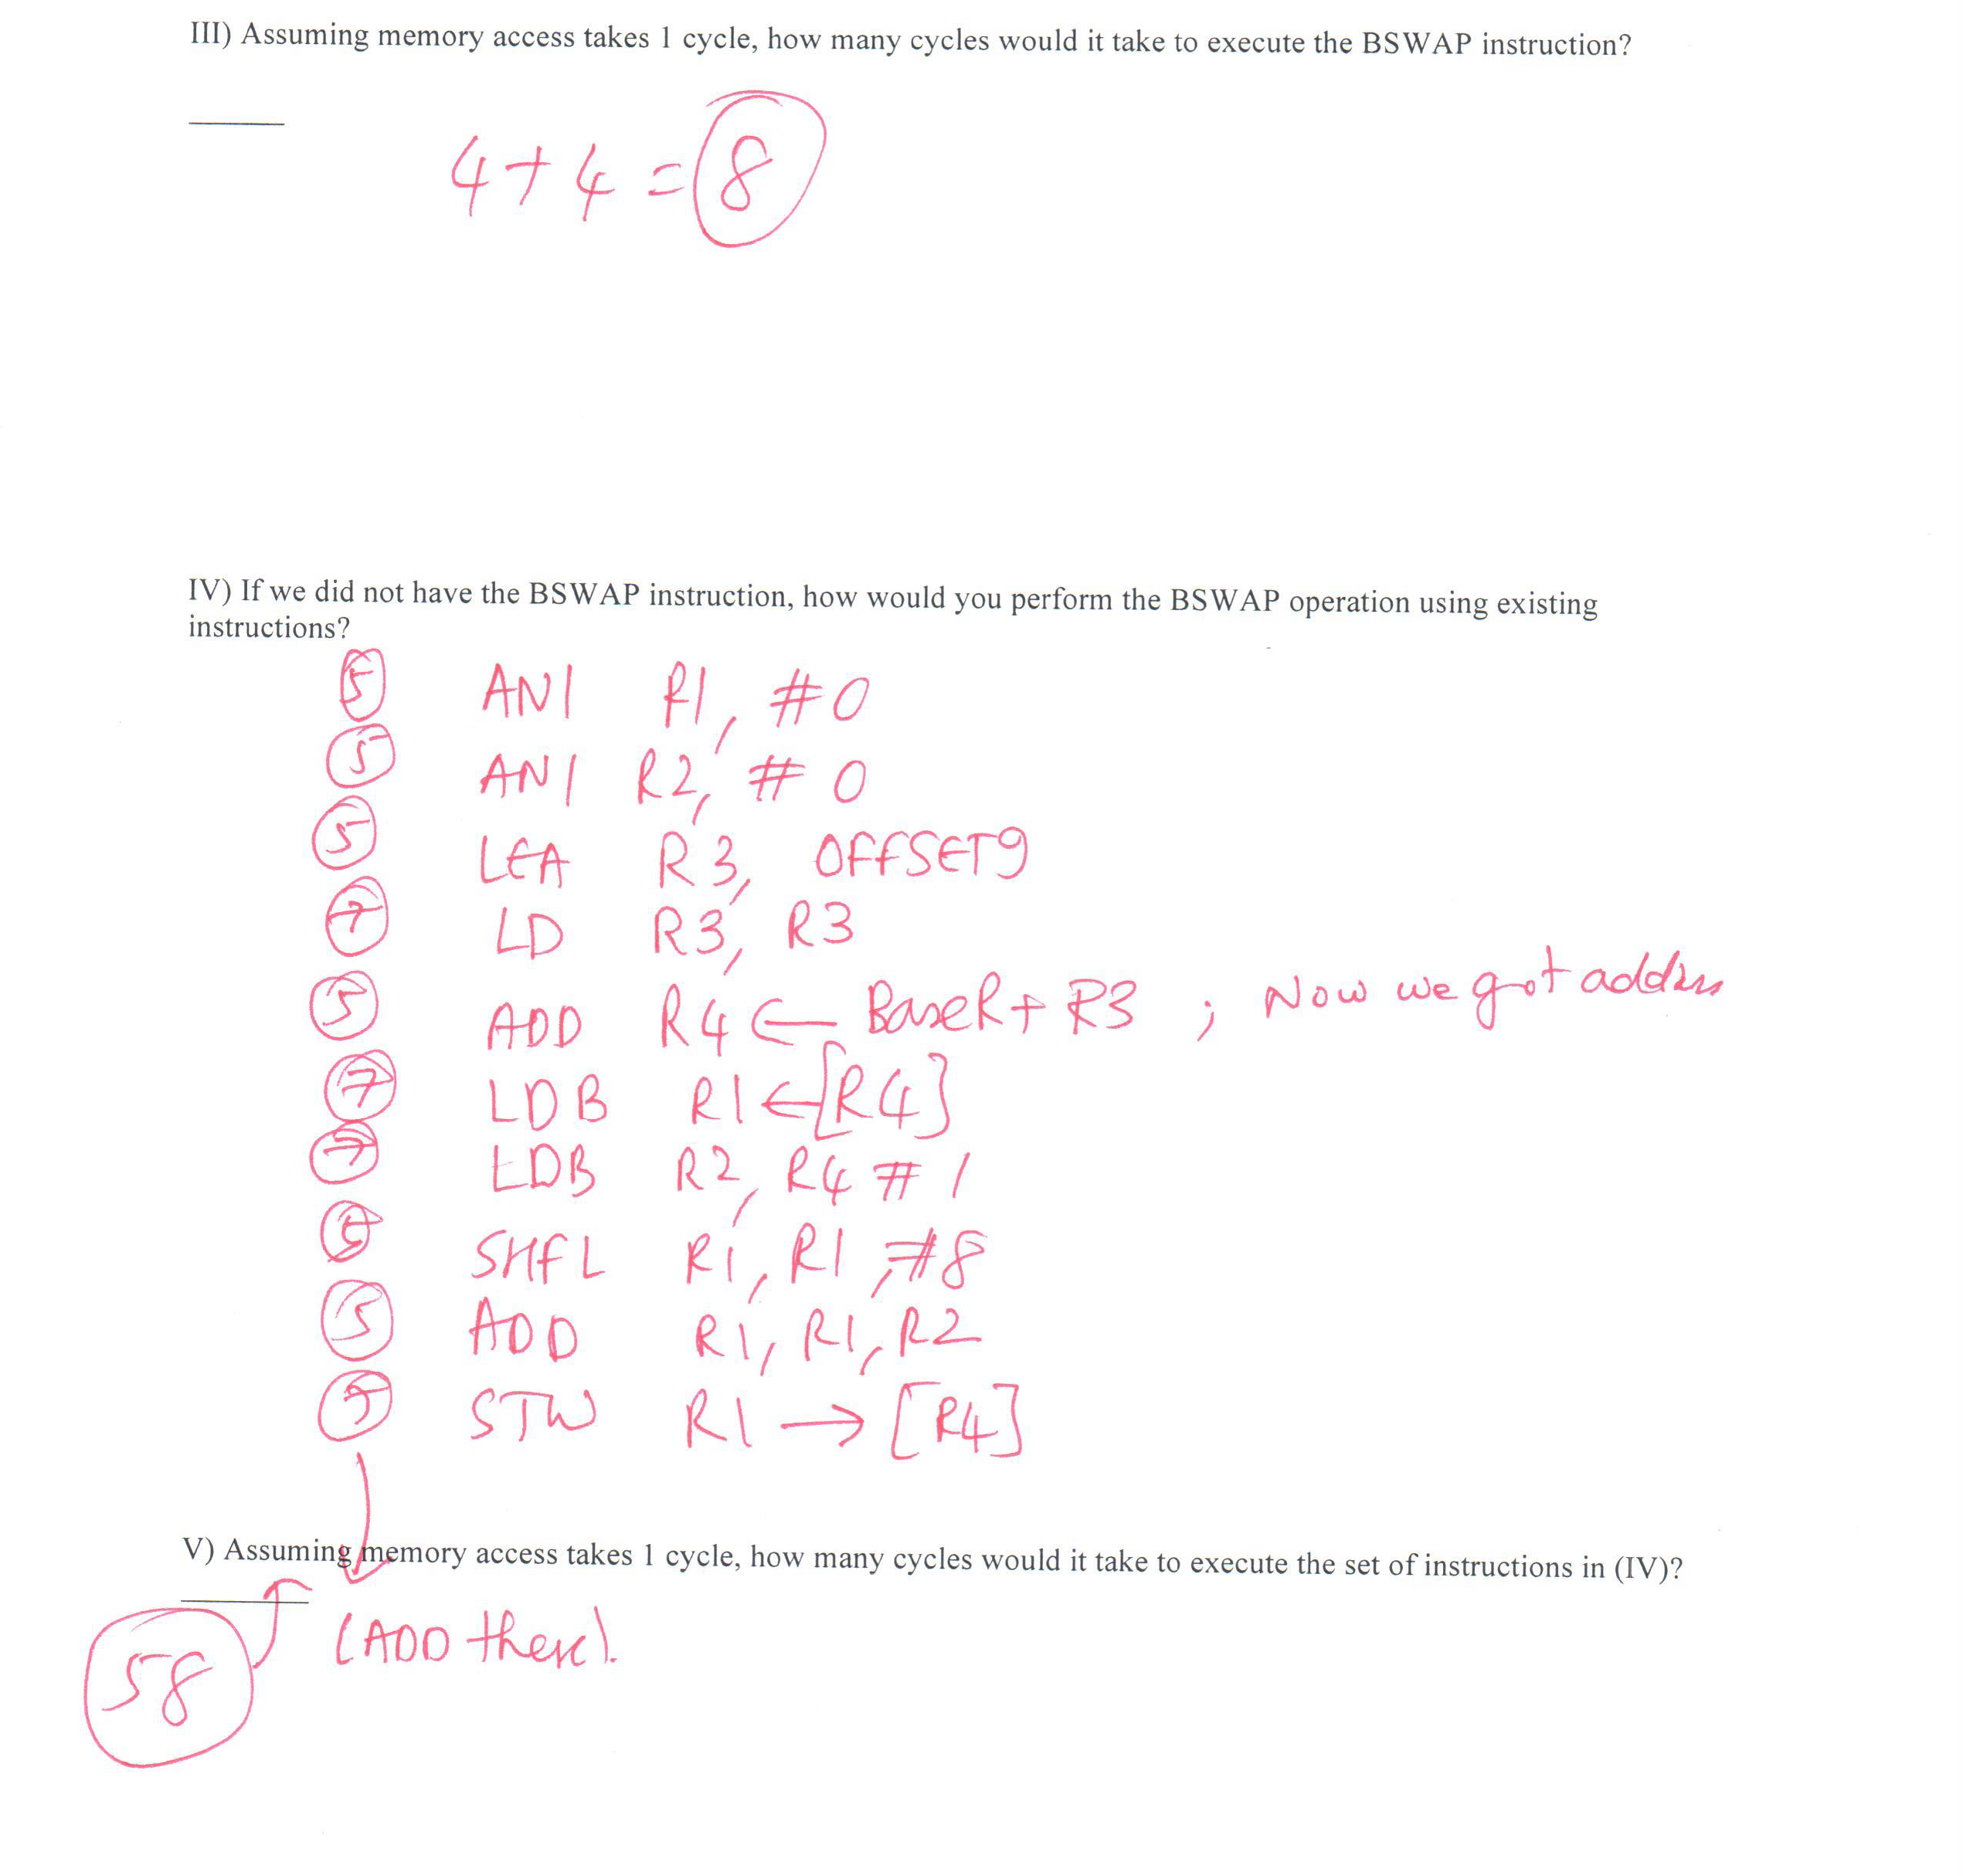 III) Assuming memory access takes 1 cycle, how many cycles would it take to execute the BSWAP instruction?
4+4 = 8
IV) If we did not have the BSWAP instruction, how would you perform the BSWAP operation using existing
instructions?
5 ANI R1, #0
5 ANI R2, #0
5 LEA R3, OFFSET9
7 LD R3, R3
5 ADD R4 ← BaseR + R3 ; Now we got address
7 LDB R1 ← [R4]
7 LDB R2, R4 #1
5 SHFL R1, R1, #8
5 ADD R1, R1, R2
STW R1 → [R4]
V) Assuming memory access takes 1 cycle, how many cycles would it take to execute the set of instructions in (IV)?
(ADD them).
58